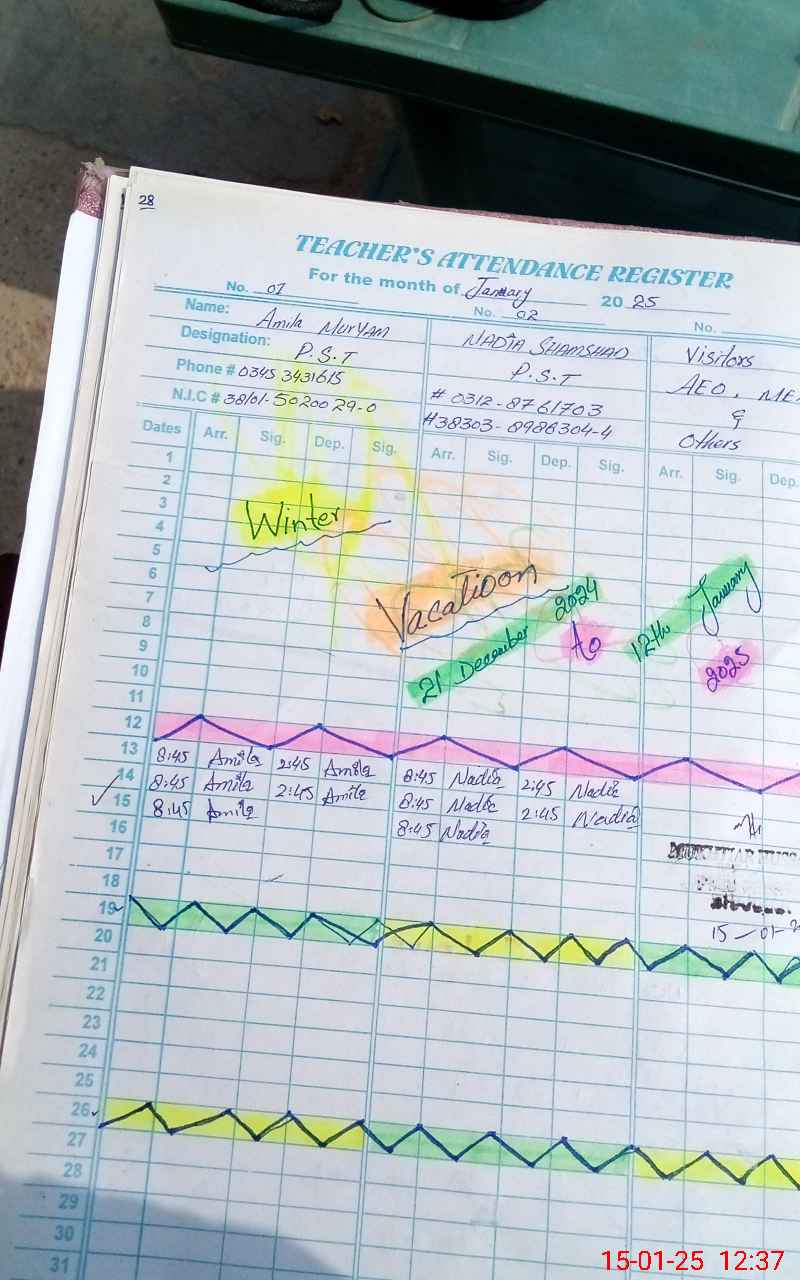 28
TEACHER'S ATTENDANCE REGISTER
For the month of January 2025
No. 01 No. 02 No.
Name: Amila Muryam NADIA SHAMSHAD Visitors
Designation: P.S.T P.S.T AEO,
Phone # 0345 3431615 # 0312-8761703 &
N.I.C # 38101-5020029-0 #38303-8986304-4 Others
Dates Arr. Sig. Dep. Sig. Arr. Sig. Dep. Sig. Arr. Sig. Dep.
1
2
3
Winter
4
5
6
7
Vacatioon
8
21 December 2024 To 12th January 2025
9
10
11
12
13 8:45 Amila 2:45 Amila 8:45 Nadia 2:45 Nadia
14 8:45 Amila 2:45 Amila 8:45 Nadia 2:45 Nadia
15 8:45 Amila 8:45 Nadia
16
17
18
19
15-01-2
20
21
22
23
24
25
26
27
28
29
30
31
15-01-25 12:37